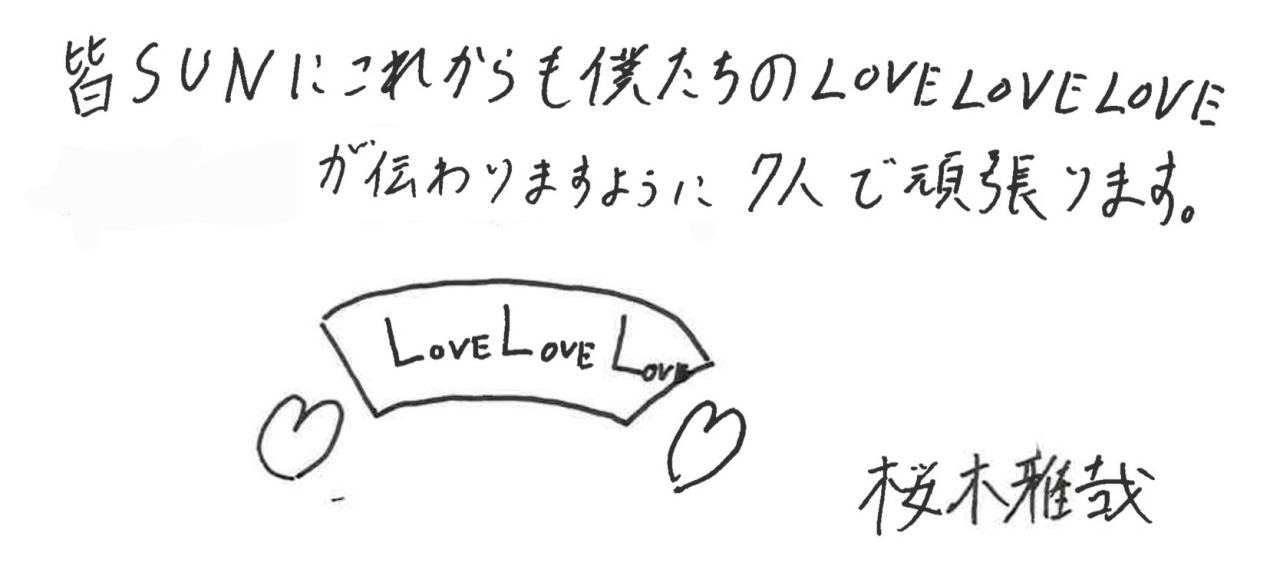 皆SUNにこれからも僕たちのLOVELOVELOVE
が伝わりますように7人で頑張ります。
LOVE LOVE LOVE
桜木雅哉